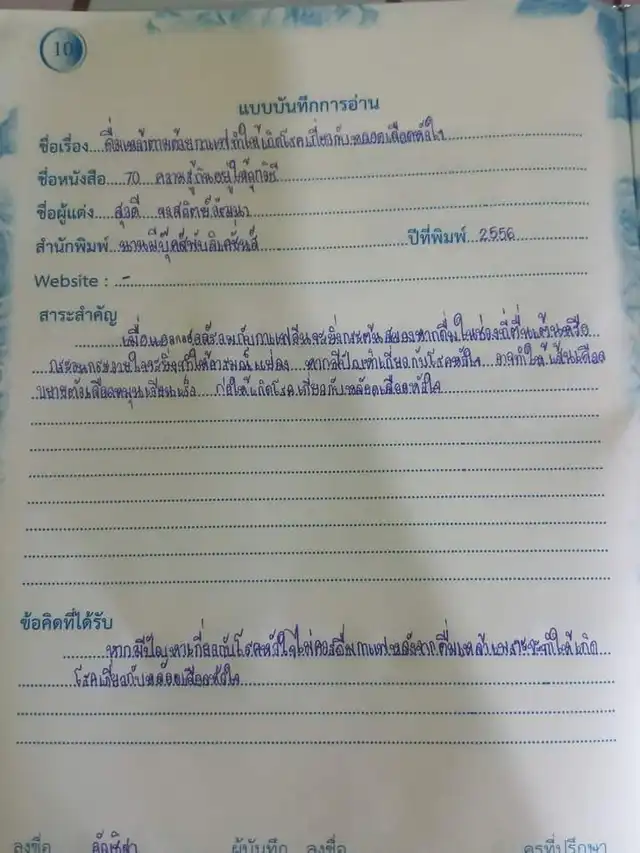 10
แบบบันทึกการอ่าน
ชื่อเรื่อง ดื่มเหล้าตามด้วยกาแฟทำให้เกิดโรคเกี่ยวกับหลอดเลือดหัวใจ
ชื่อหนังสือ 70 ความรู้กินอยู่ให้ถูกวิธี
ชื่อผู้แต่ง สุวดี จงสถิตย์วัฒนา
สำนักพิมพ์ นานมีบุ๊คส์พับลิเคชั่นส์ ปีที่พิมพ์ 2556
Website : -
สาระสำคัญ
เมื่อแอลกอฮอล์รวมกับกาแฟอีนจะยิ่งกระตุ้นสมองหากดื่มในช่วงที่ตื่นเต้นหรือ
กระวนกระวายใจจะยิ่งทำให้อารมณ์แปรปรวน หากมีปัญหาเกี่ยวกับโรคหัวใจ อาจทำให้เส้นเลือด
ขยายตัวเลือดหมุนเวียนเร็ว ก่อให้เกิดโรคเกี่ยวกับหลอดเลือดหัวใจ
ข้อคิดที่ได้รับ
หากมีปัญหาเกี่ยวกับโรคหัวใจไม่ควรดื่มกาแฟหลังจากดื่มเหล้าเพราะจะทำให้เกิด
โรคเกี่ยวกับหลอดเลือดหัวใจ
ลงชื่อ ผู้บันทึก ลงชื่อ ครูที่ปรึกษา